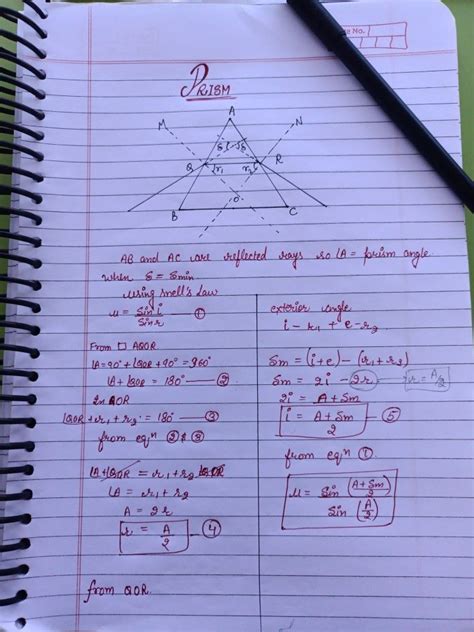 Page No.
PRISM
A
M
N
δ δ
Q
r₁ r₂
R
O
B
C
AB and AC are reflected rays so ∠A = prism angle
when δ = δmin
using snell's Law
μ = Sin i / Sin r — ①
From □ AQOR
∠A + 90° + ∠QOR + 90° = 360°
∠A + ∠QOR = 180° — ②
In QOR
∠QOR + r₁ + r₂ = 180° — ③
from eqⁿ ② & ③
∠A + ∠QOR = r₁ + r₂ ∠QOR
∠A = r₁ + r₂
A = 2r
r = A/2 — ④
from QOR
exterior angle
i - r₁ + e - r₂
δm = (i + e) - (r₁ + r₂)
δm = 2i - 2r — r = A/2
2i = A + δm
i = A + δm / 2 — ⑤
from eqⁿ ①
μ = Sin (A + δm / 2) / Sin (A/2)